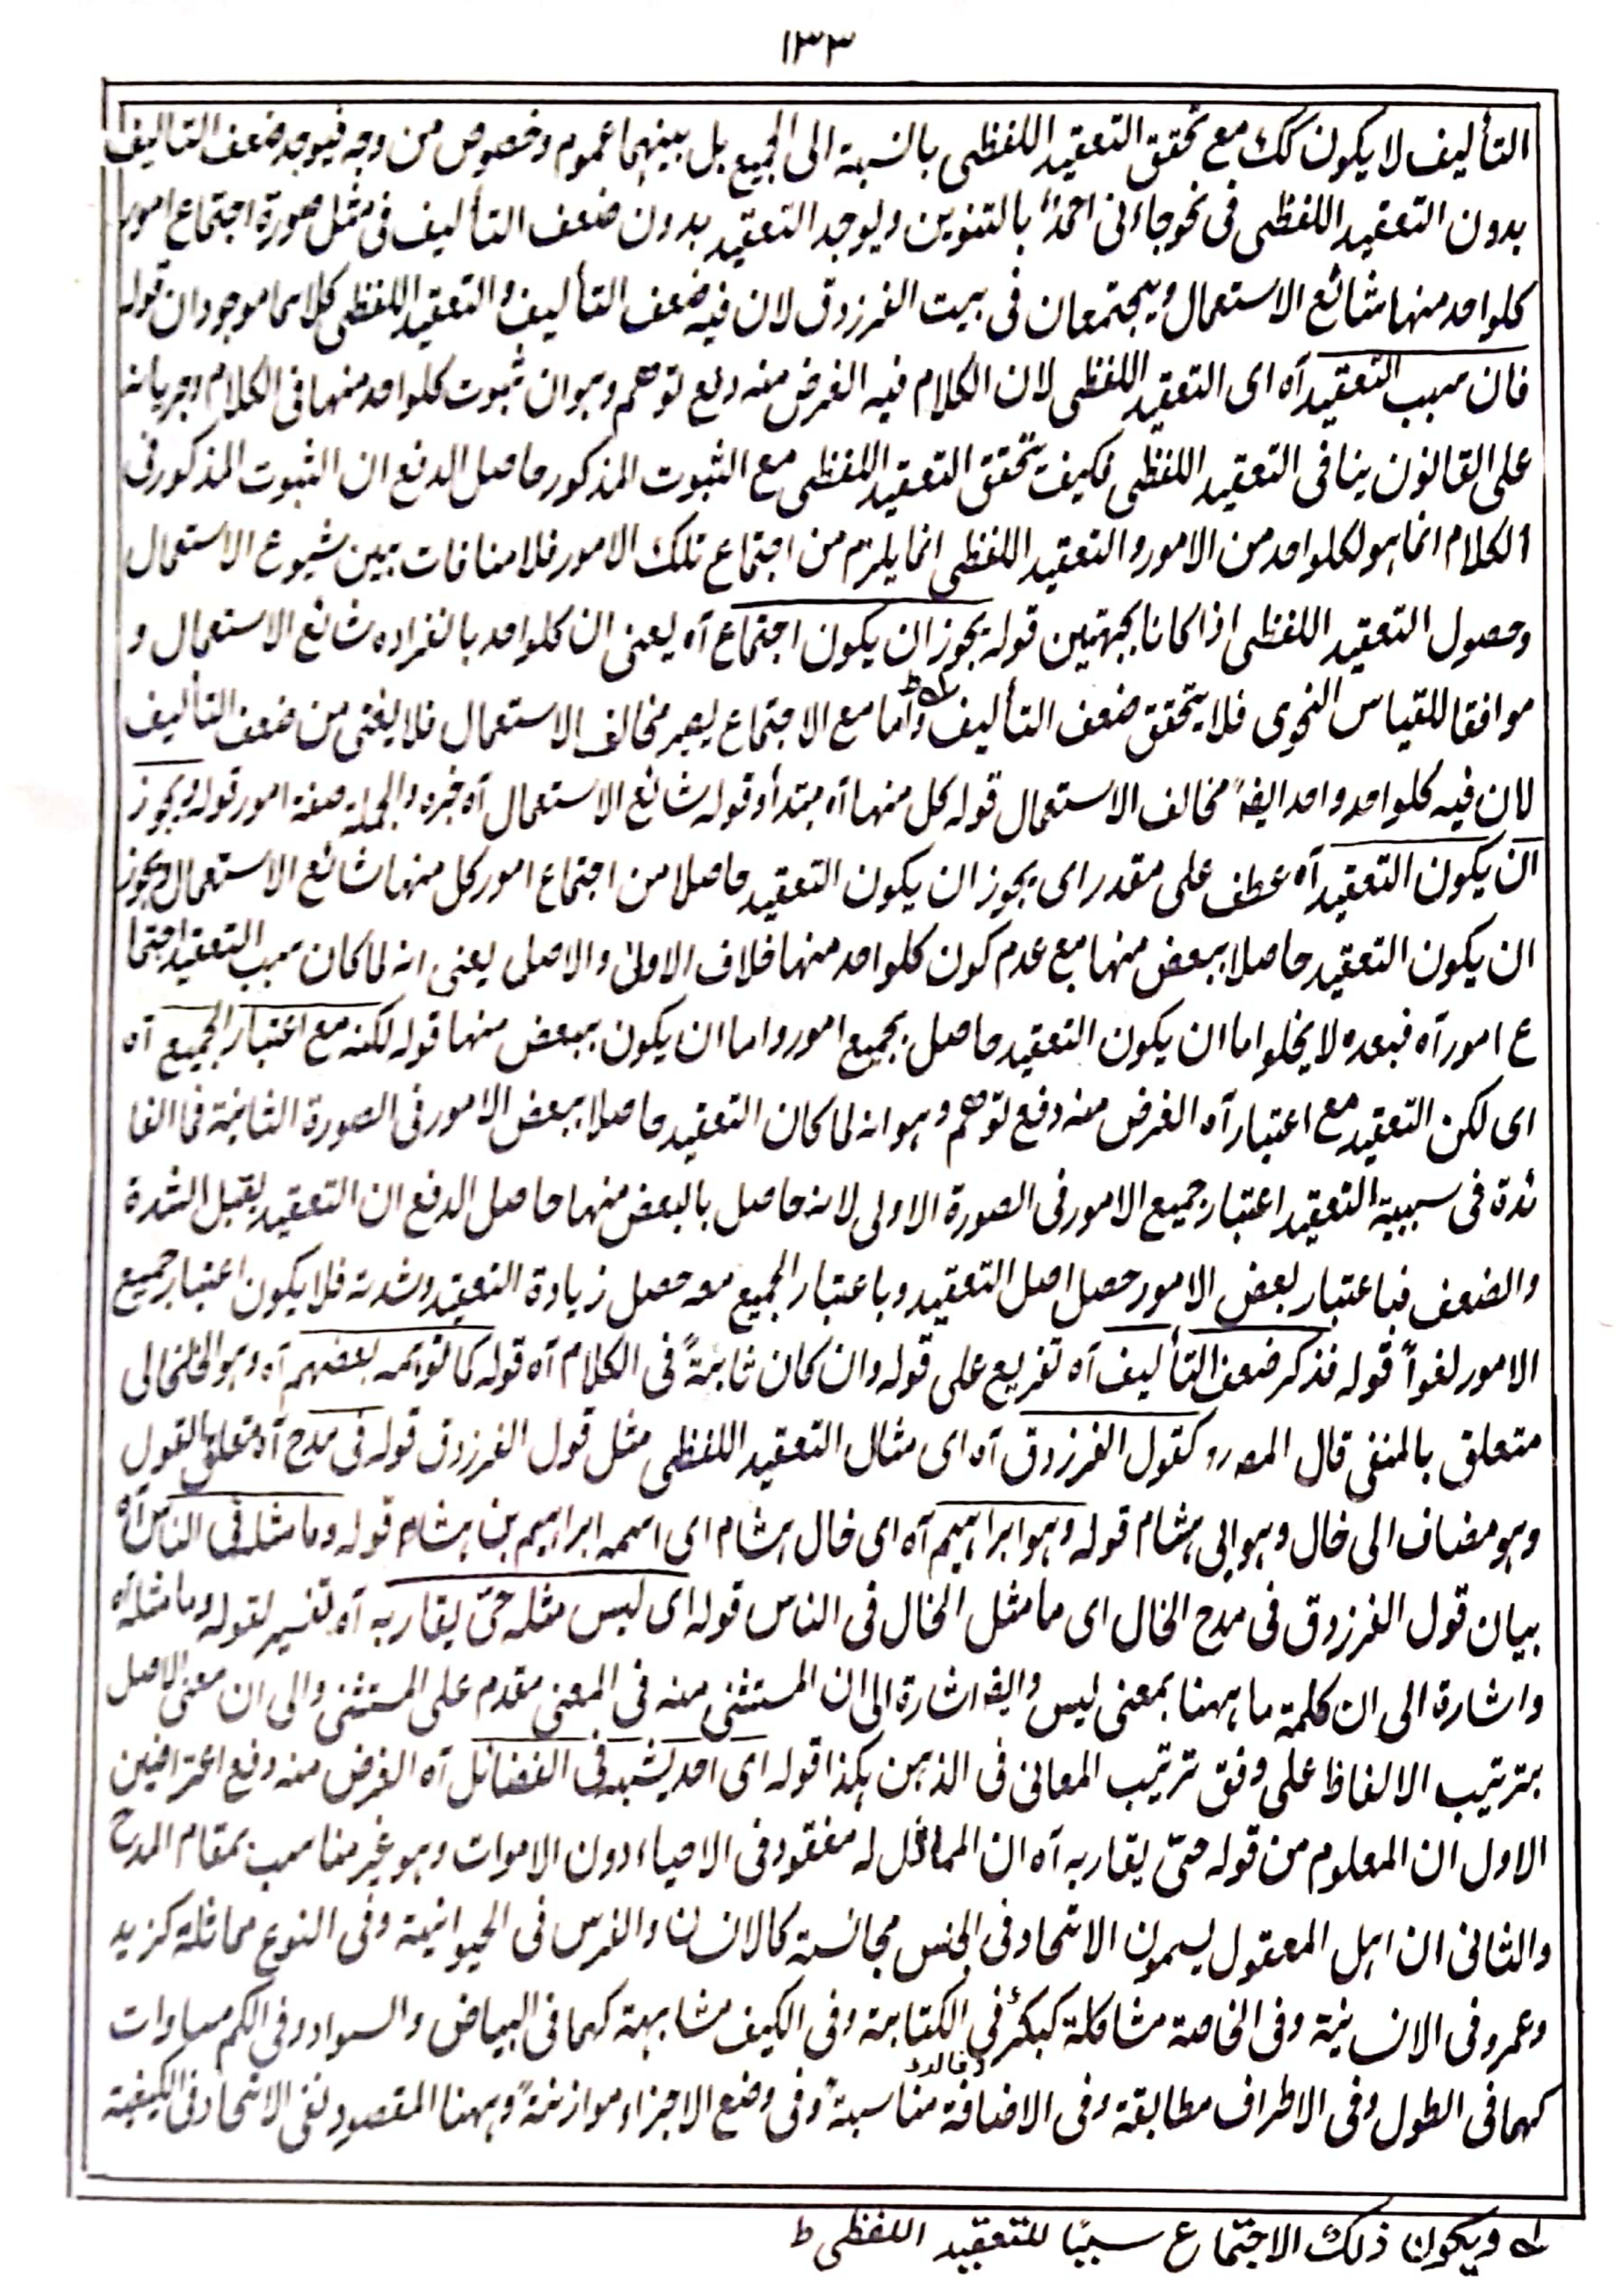 ١٣٣
التأليف لا يكون كك مع تحقق التعقيد اللفظى بالنسبة الى الجميع بل بينهما عموم وخصوص من وجه فيوجد ضعف التاليف
بدون التعقيد اللفظى فى نحو جاءنى احمدٌ بالتنوين ويوجد التعقيد بدون ضعف التأليف فى مثل صورة اجتماع امور
كلواحد منها شائع الاستعمال ويجتمعان فى بيت الفرزدق لان فيه ضعف التأليف والتعقيد اللفظى كلاهما موجودان قوله
فان سبب التعقيد آه اى التعقيد اللفظى لان الكلام فيه الغرض منه دفع توهم وهو ان ثبوت كلواحد منها فى الكلام وجريانه
على القانون ينافى التعقيد اللفظى فكيف تحقق التعقيد اللفظى مع الثبوت المذكور حاصل الدفع ان الثبوت المذكور فى
الكلام انما هو لكلواحد من الامور والتعقيد اللفظى انما يلزم من اجتماع تلك الامور فلا منافات بين شيوع الاستعمال
وحصول التعقيد اللفظى اذا كانا بجهتين قوله يجوز ان يكون اجتماع آه يعنى ان كلواحد بانفراده شائع الاستعمال و
موافقا للقياس النحوى فلا يتحقق ضعف التأليف واما مع الاجتماع يصير مخالف الاستعمال فلا يغنى من ضعف التأليف
لان فيه كلواحد واحد ايضً مخالف الاستعمال قوله كل منها آه مبتدأ وقوله شائع الاستعمال آه خبره والجملة صفة امور قوله ويجوز
ان يكون التعقيد آه عطف على مقدر اى يجوز ان يكون التعقيد حاصلا من اجتماع امور كل منها شائع الاستعمال ويجوز
ان يكون التعقيد حاصلا ببعض منها مع عدم كون كلواحد منها خلاف الاولىٰ والاصل يعنى انه لما كان سبب التعقيد اجتما
ع امور آه فبعده لا يخلوا اما ان يكون التعقيد حاصل بجميع امور واما ان يكون ببعض منها قوله لكنه مع اعتبار الجميع آه
اى لكن التعقيد مع اعتبار آه الغرض منه دفع توهم وهو انه لما كان التعقيد حاصلا ببعض الامور فى الصورة الثانية فما الفا
ئدة فى سببية التعقيد اعتبار جميع الامور فى الصورة الاولى لانه حاصل بالبعض منها حاصل الدفع ان التعقيد يقبل الشدة
والضعف فباعتبار بعض الامور حصل اصل التعقيد وباعتبار الجميع معه حصل زيادة التعقيد وشدته فلا يكون اعتبار جميع
الامور لغواً قوله فذكر ضعف التأليف آه تفريع على قوله وان كان ثابتةً فى الكلام آه قوله كما توهمه بعضهم آه وهو الخلخالى
متعلق بالمنفى قال المصرر كقول الفرزدق آه اى مثال التعقيد اللفظى مثل قول الفرزدق قوله فى مدح آه متعلق بالقول
وهو مضاف الى خال وهو الى هشام قوله وهو ابراهيم آه اى خال هشام اى اسمه ابراهيم بن هشام قوله وما مثله فى الناس آه
بيان قول الفرزدق فى مدح الخال اى ما مثل الخال فى الناس قوله اى ليس مثله حىّ يقاربه آه تفسير لقوله وما مثله آه
واشارة الى ان كلمة ما ههنا بمعنى ليس وايضا اشارة الى ان المستثنى منه فى المعنى مقدم على المستثنى والى ان معنى الاصل
بترتيب الالفاظ على وفق ترتيب المعانى فى الذهن هكذا قوله اى احد يشبهه فى الفضائل آه الغرض منه دفع اعتراضين
الاول ان المعلوم من قوله حىّ يقاربه آه ان المماثل له مفقود فى الاحياء دون الاموات وهو غير مناسب بمقام المدح
والثانى ان اهل المعقول يسمون الاتحاد فى الجنس مجانسة كالانسان والفرس فى الحيوانية وفى النوع مماثلة كزيد
وعمرو فى الانسانية وفى الخاصة مشاكلة كبكر فى الكتابة وفى الكيف مشابهة كهما فى البياض والسواد وفى الكم مساوات
كهما فى الطول وفى الاطراف مطابقة وفى الاضافة مناسبة وفى وضع الاجزاء موازنة وههنا المقصود نفى الاتحاد فى الكيفية
له ويكون ذلك الاجتماع سببًا للتعقيد اللفظى ط